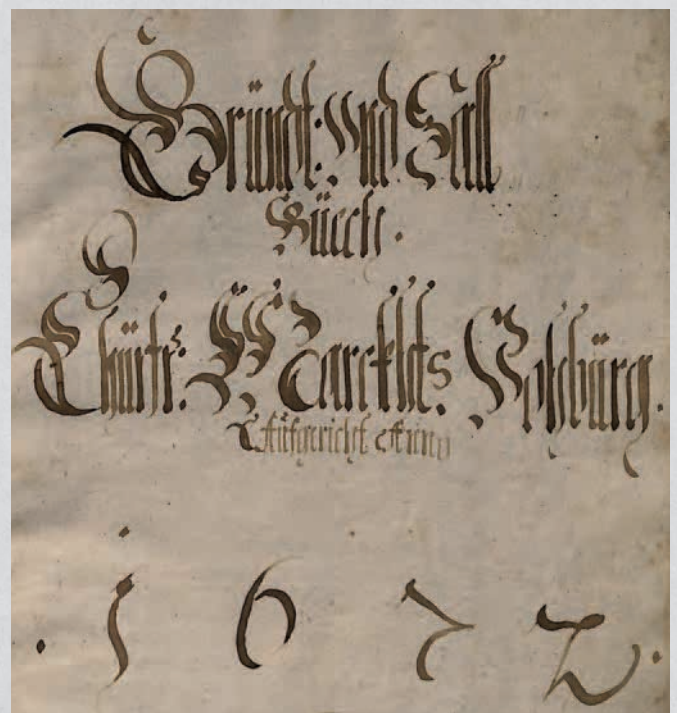 Gründt: Und Sall
Büech.
Chürfr: Marckhts. Vohbürg.
Aüfgericht Anno
. 1 6 7 2 .